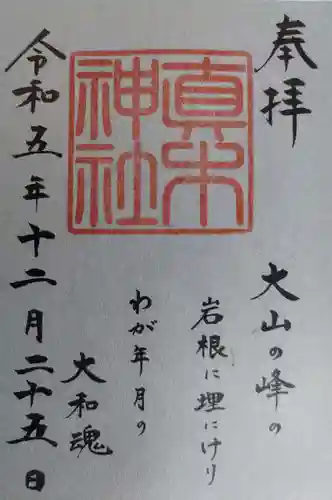 奉拝
真木神社
大山の峰の
岩根に埋にけり
わが年月の
大和魂
令和五年十二月二十五日